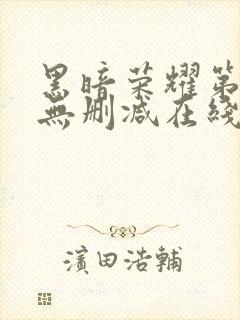 黑暗荣耀第
無删减在綫
濱田浩輔